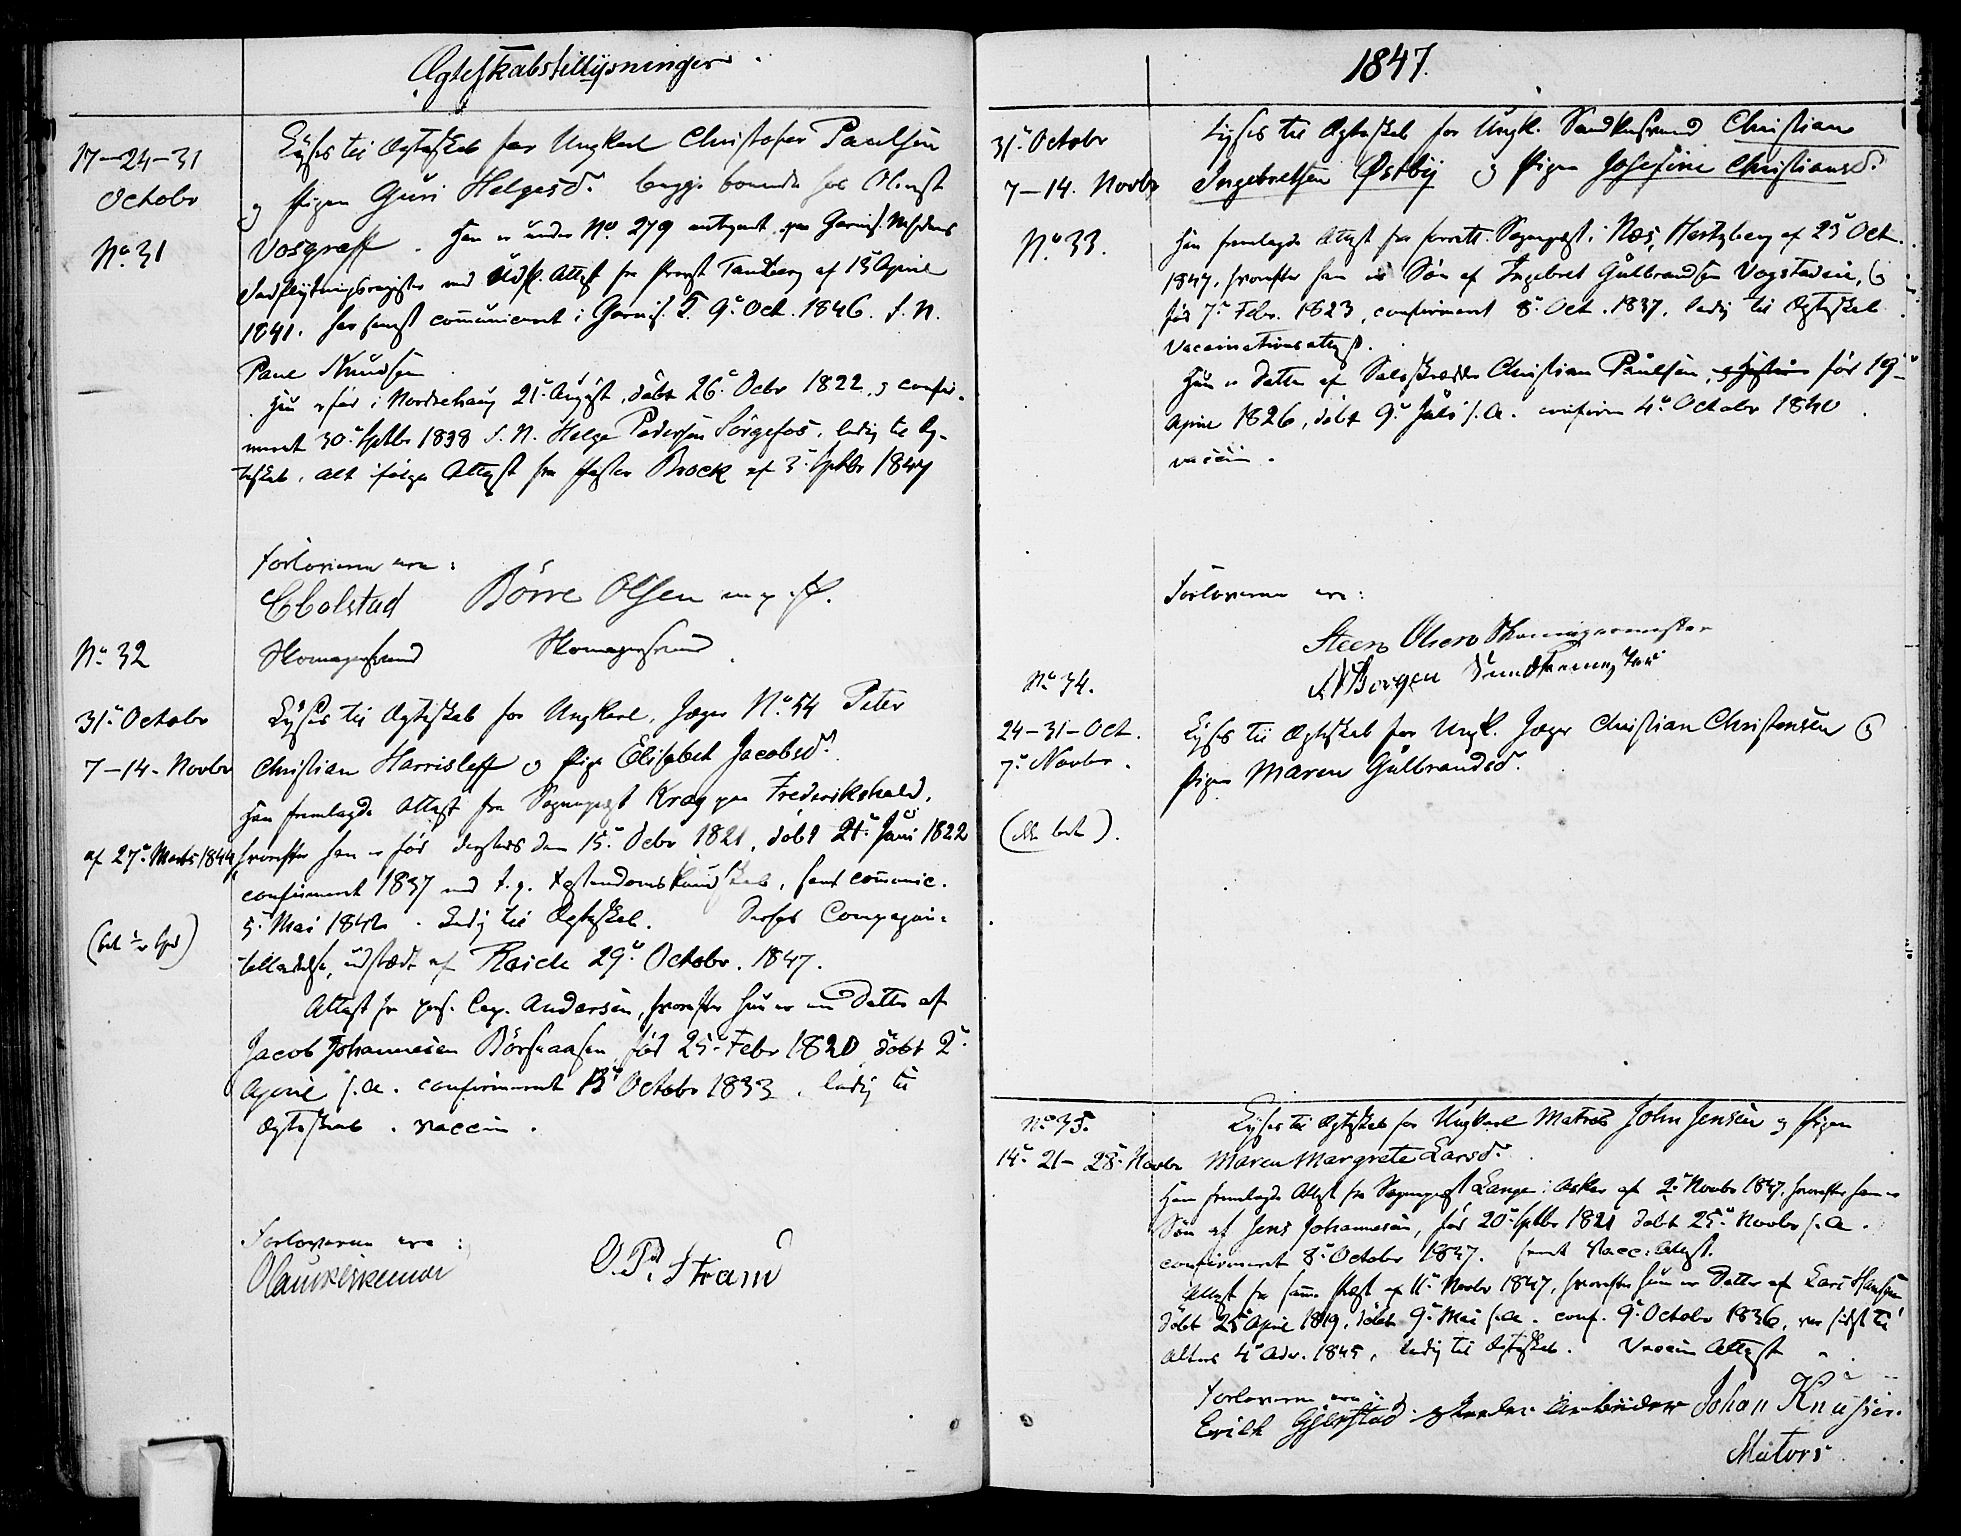 Ægteskabstillysninger.
17-24-31
Octobr
No. 31
Lyses til Ægteskab for Ungkarl Christofer Paulsen
og Pigen Guri Helgesd. begge boende hos Olinst
Vosgraff. Han er under No. 279 antegnet paa Garnis. Mendens
Indflytningsregister med Udfl. Attest fra Provst Tandberg af 13 April
1841. har senest communiceret i Garnis. T. 9de Oct. 1846. S. N.
Paul Knudsen
Hun er født i Norderhaug 21de August, døbt 26de Octbr 1822, og confir-
meret 30te Septbr 1838 S. N. Helge Pedersen Sørgefos, ledig til Æg-
teskab, alt ifølge Attest fra Præsten Brock af 3die Septbr 1847
Forloverne ere:
C Bolstad Börre Olsen m. p. P.
Skomagersvend Skomagersvend
No. 32
31te Octobr
7-14- Novbr
Lyses til Ægteskab for Ungkarl, Jæger No. 54 Peter
Christian Harrisleff og Pige Elisabet Jacobsd.
Han fremlagde Attest fra Sognepræst Krag paa Frederikshald,
af 27de Marts 1844
hvorefter han er født dersteds den 15de Octbr 1821, døbt 21de Juni 1822
confirmeret 1837 med t. g. Kristendomskundskab, sent communic.
5te Mai 1842. Ledig til Ægteskab. Derhos Compagni-
tilladelse, udstædt af Reich 29de Octobr. 1847.
Attest fra pers. Cap. Andersen, hvorefter Hun er en Datter af
Jacob Johannesen Börsaasen, född 25de Febr 1820 döbt 2den
April s. A. confirmeret 13de Octobr 1833, ledig til
Ægteskab. vaccin.
Forloverne ere:
O. Pd. Stram
1847.
31te Octobr
7-14. Novbr
No. 33.
Lyses til Ægteskab for Ungk. Sandkusvend Christian
Ingebretsen Østby og Pigen Josefine Christiansd.
Han fremlagde Attest fra Sognepræst i Næs, Hertzberg af 23 Oct.
1847, hvorefter han er Søn af Ingebret Gulbrandsen Vogstadeie, og
født 7de Febr. 1823, confirmeret 8de Oct. 1837, ledig til Ægteskab
Vaccinationsattest.
Hun er Datter af Christian Paulsen, født 19de
April 1826, döbt 9de Juli s. A. confirm 4de Octobr 1840
vaccin.
Forloverne ere:
Steen Olsen
A Borgen
No. 34.
24-31-Oct.
7de Novbr.
Lyses til Ægteskab for Ungk. Jæger Christian Christensen og
Pigen Maren Gulbrandsd.
No. 35.
14de 21- 28de Novbr
Lyses til Ægteskab for Ungkarl Matros John Jensen og Pigen
Maren Margrete Larsd.
Han fremlagde Attest fra Sognepræst Lange i Asker af 2den Novbr 1847, hvorefter han er
Søn af Jens Johannesen, född 20de Septbr 1821 döbt 25de Novbr s. A.
confirmeret 8de October 1837. samt Vacc: Attest.
Attest fra samme Præst af 11te Novbr 1847, hvorefter hun er Datter af Lars Hansen
döbt 25de April 1819, döbt 9de Mai s. A. conf. 9de Octobr 1836, var sidst til
Alters 4de Adv. 1845, ledig til Ægteskab. Vaccin Attest
Forloverne ere
Erick Gjerstad Arbeider Johan Knusen.
Mators